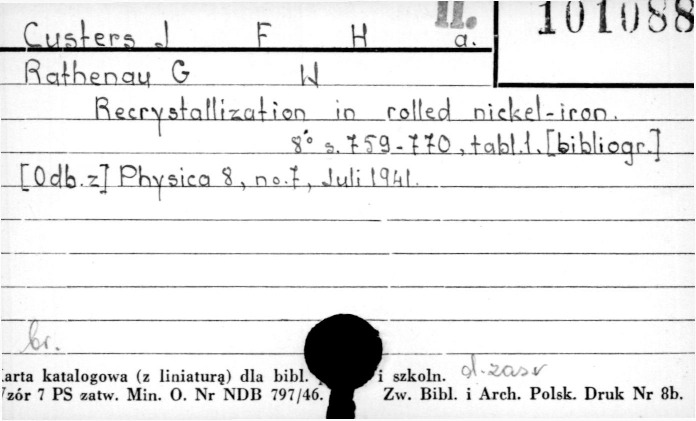 II. 101088
Custers J F H a.
Rathenau G W
Recrystallization in rolled nickel-iron.
8° s. 759-770, tabl.1. [bibliogr.]
[Odb. z] Physica 8, no. 7, Juli 1941.
br.
arta katalogowa (z liniaturą) dla bibl. i szkoln.
zór 7 PS zatw. Min. O. Nr NDB 797/46. Zw. Bibl. i Arch. Polsk. Druk Nr 8b.